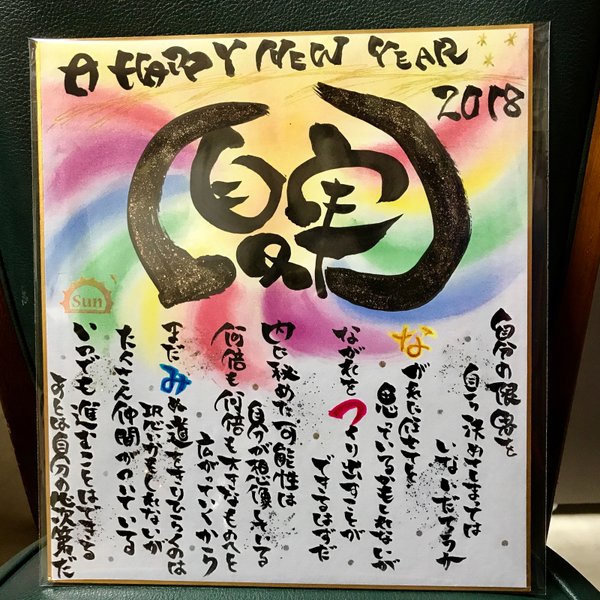 A HAPPY NEW YEAR
2018
Sun
自分の限界を
自ら決めてしまっては
いないだろうか
ながれに任せてと
思っているかもしれないが
ながれをつくり出すことが
できるはずだ
内に秘めた可能性は
自分が想像している
何倍も何倍も大きなものへと
広がっていくから
まだみぬ道をきりひらくのは
恐いかもしれないが
たくさん仲間がのいている
いつでも進むことはできる
あとは自分の心次第だ